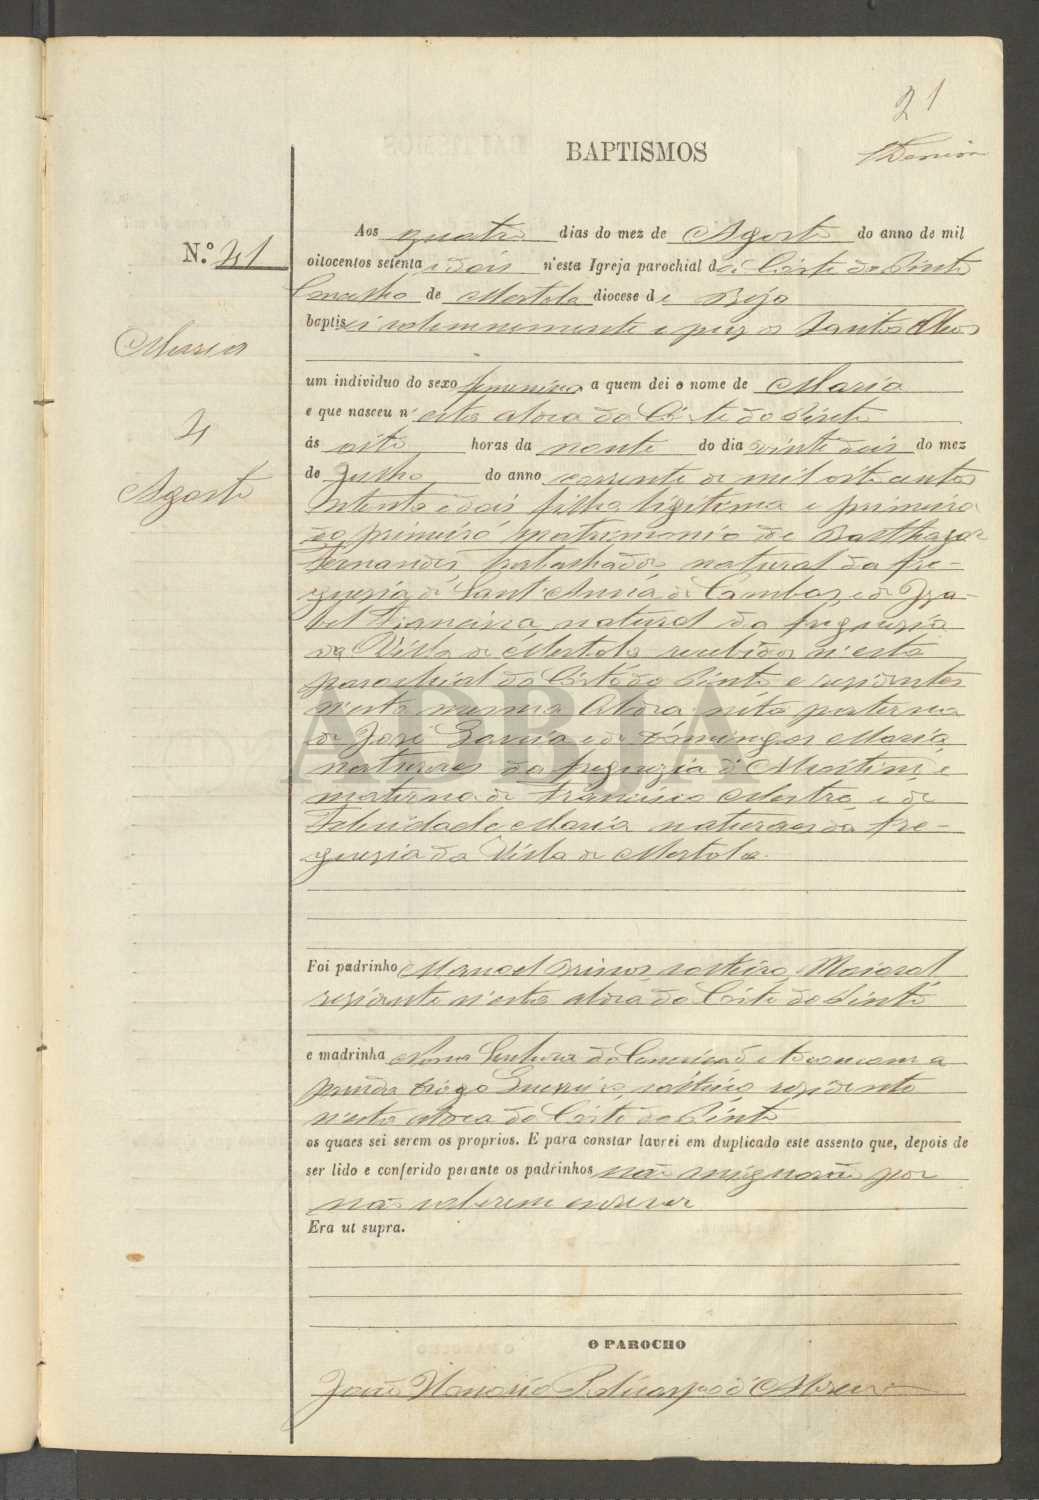 21
BAPTISMOS
N.º 41
Maria
4
Agosto
Aos quatro dias do mez de Agosto do anno de mil
oitocentos setenta e dois n'esta Igreja parochial da Côrte do Pinto
Concelho de Mertola diocese de Beja
baptisei solemnemente e puz os Santos Oleos
um individuo do sexo femenino a quem dei o nome de Maria
e que nasceu n'esta aldea da Côrte do Pinto
ás oito horas da noute do dia vinte dois do mez
de Julho do anno corrente de mil oito centos
setenta e dois filha ligitima e primeira
do primeiro matrimonio de Balthazar
Fernandes, trabalhador natural da fre-
guezia de Sant'Anna de Cambas, e de Iza-
bel Francisca natural da freguezia
da Villa de Mertola recebidos n'esta
parochial da Côrte do Pinto e rezidentes
n'esta mesma Aldea: neta paterna
de José Garcia e de Domingas Maria
naturaes da freguezia de Martim, e
materna de Francisco Mestre e de
Felicidade Maria naturaes da fre-
guezia da Villa de Mertola.
Foi padrinho Manoel solteiro, Maioral
rezidente n'esta aldea da Côrte do Pinto
e madrinha Nossa Senhora da Conceição e tocou com a
prenda Diogo solteiro rezidente
n'esta aldea da Côrte do Pinto
os quaes sei serem os proprios. E para constar lavrei em duplicado este assento que, depois de
ser lido e conferido perante os padrinhos não assignarão por
não saberem escrever
Era ut supra.
O PAROCHO
João Policarpo d'Abreu